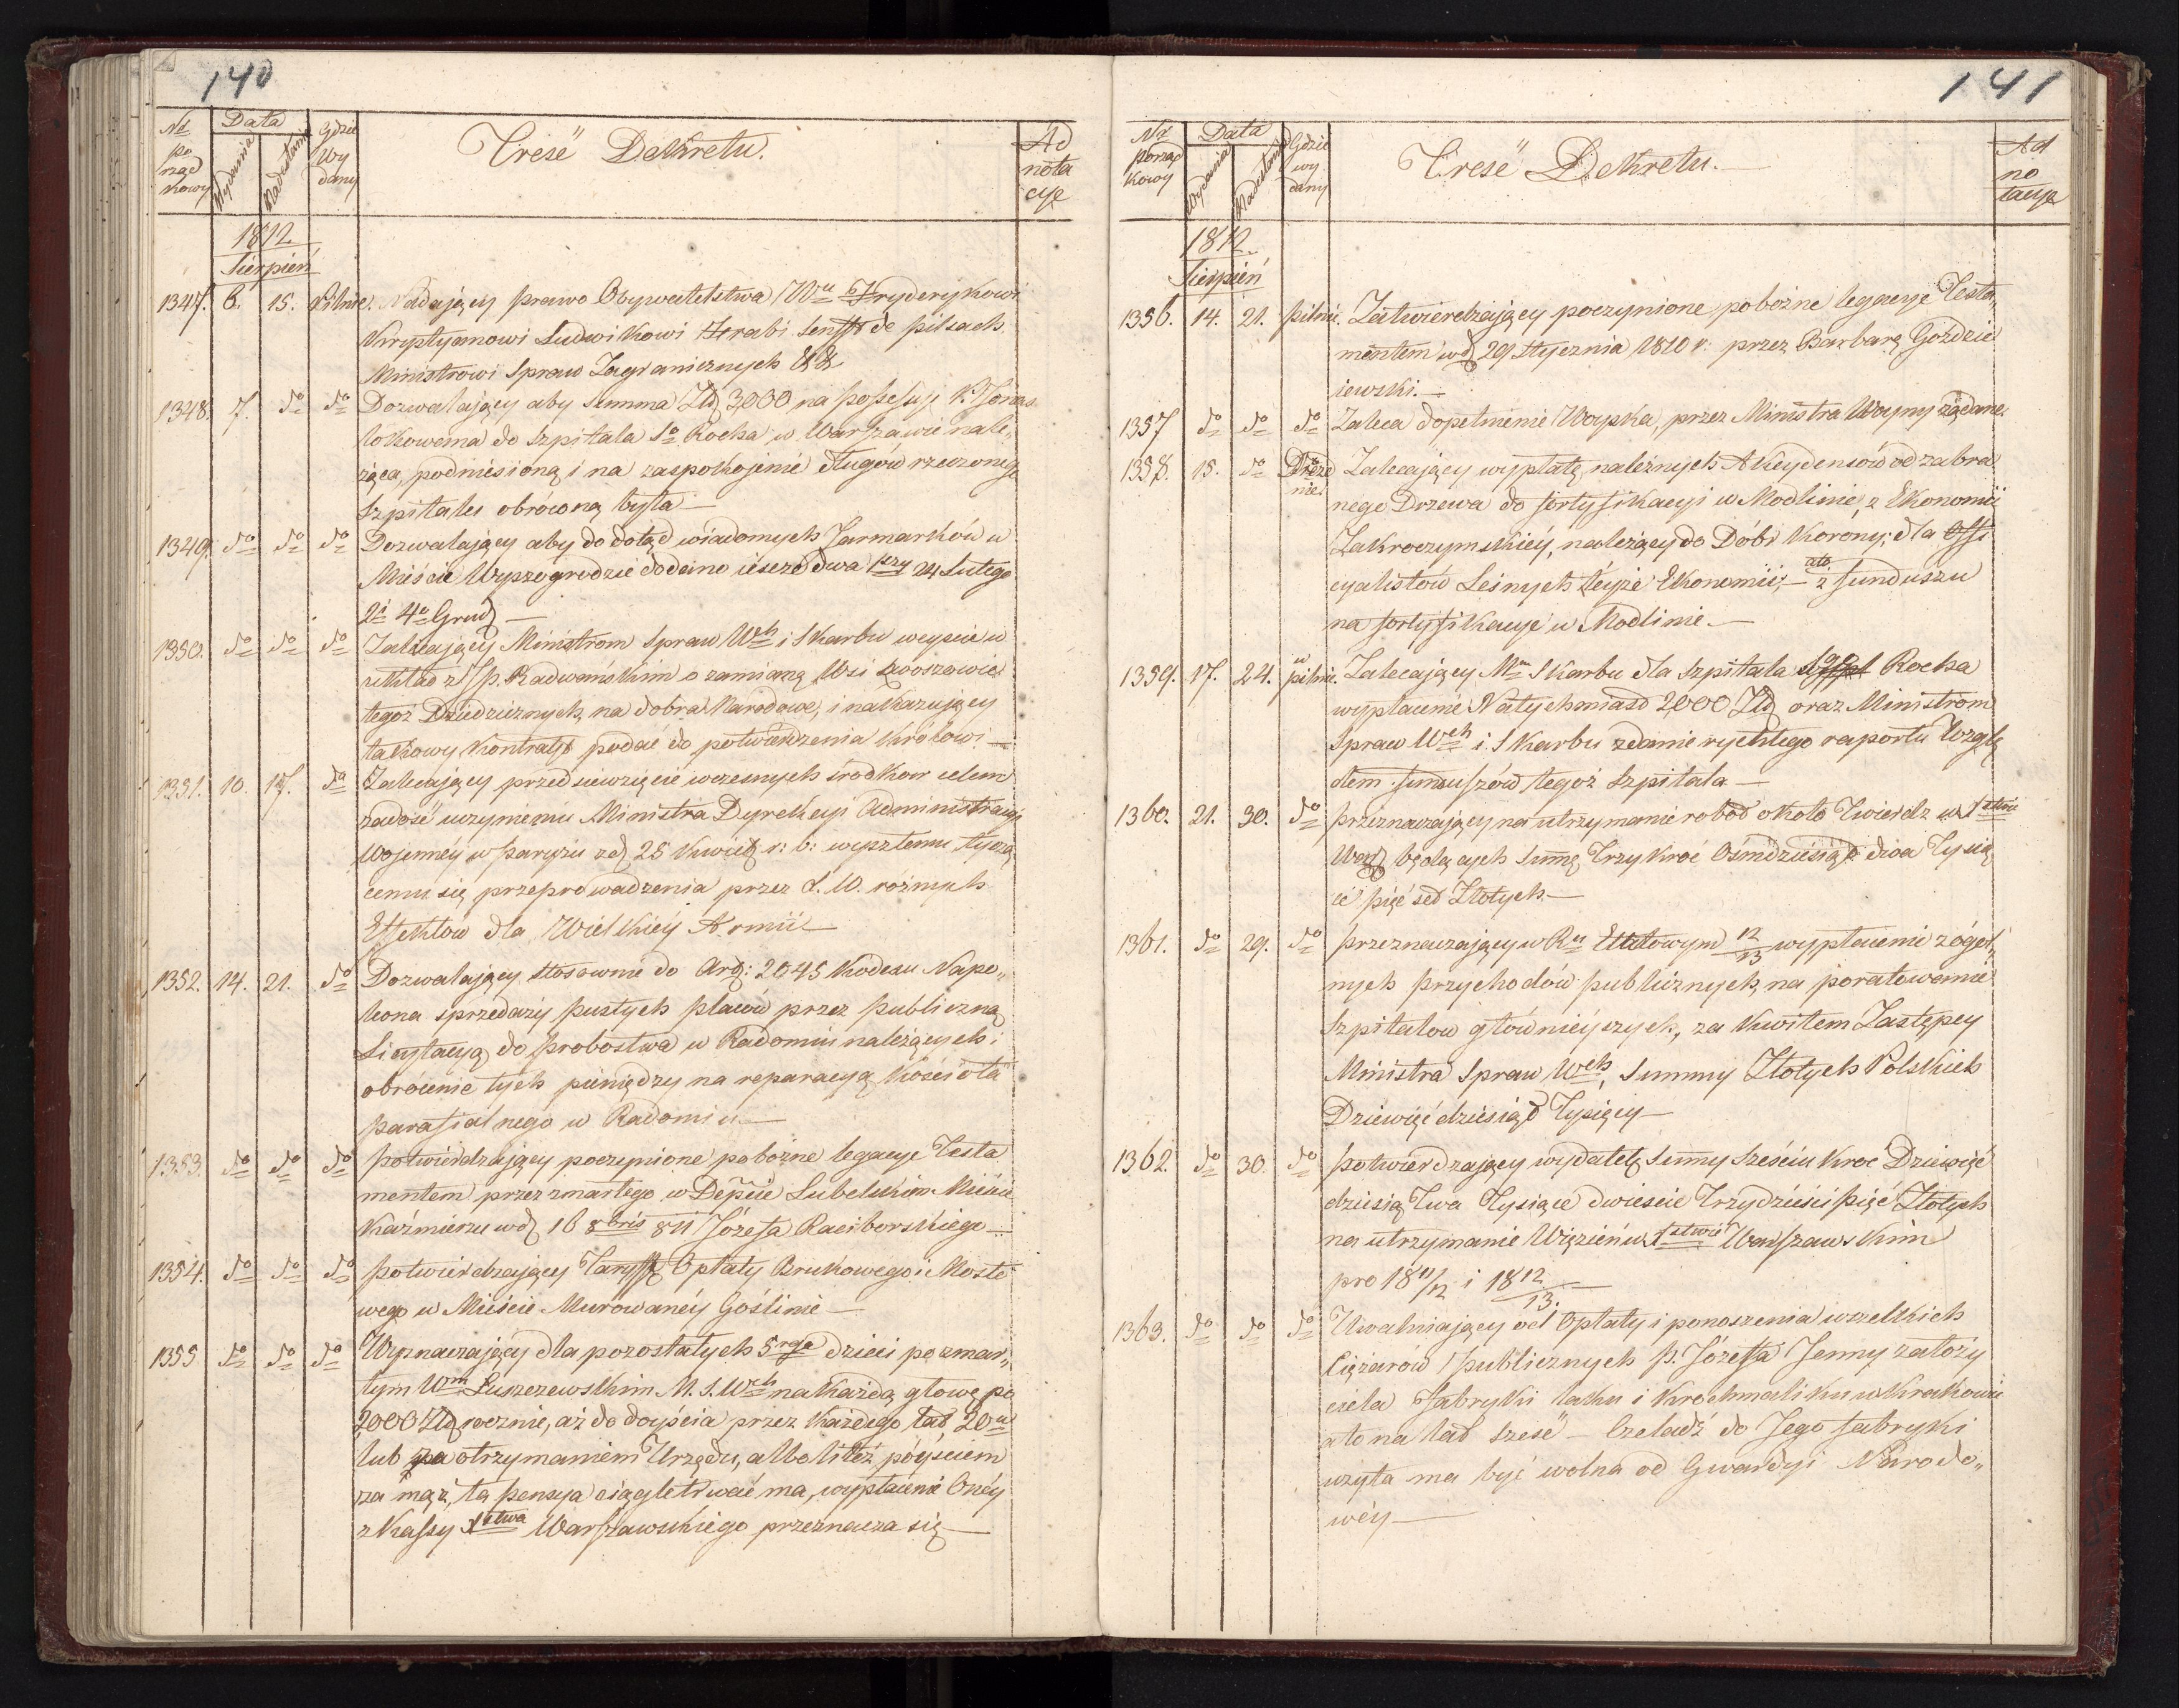 140
Nr po rząd kowy
Data
Wydania
Nadesłania
Gdzie Wy dany
Treść Dekretu.
Ad nota cye
1812
Sierpień
1347. 6. 15. Pilnic. Nadający prawo Obywatelstwa Wu Fryderykowi
Krystyanowi Ludwikowi Hrabi Senfft de Pilsach
Ministrowi Spraw Zagranicznych &&
1348. 7. do do Dozwalający aby Summa Złł 3,000 na possessyi
lokowana do Szpitala So Rocha w Warszawie nale„
żąca, podniesioną i na zaspokojenie długów rzeczonego
Szpitalu obróconą była —
1349. do do do Dozwalający aby do dotąd wiadomych Jarmarków w
Mieście Wyszogrodzie dodano ieszcze dwa 1szy 24 Lutego
2i 4o Grud —
1350. do do do Zalecający Ministrom Spraw Wch i Skarbu weyście w
układ z JP. Radwańskim o zamianę Wsi
tegoż Dziedzicznych na dobra Narodowe, i nakazujący
takowy kontrakt podać do potwierdzenia Królowi —
1351. 10. 17. do Zalecający przedsiewzięcie wczesnych środkow celem
zadość uczynieniu Ministra Dyrekcyi Administracyi
Wojenney w Paryżu zd 25 Kwiet r: b: wezwaniu tyczą
cemu się przeprowadzenia przez X. W. różnych
Effektów dla Wielkiéy Armii —
1352. 14. 21. do Dozwalający stosownie do Art: 2045 Kodexu Napo„
leona sprzedaży pustych placów przez publiczną
Licytacyą do probostwa w Radomiu należących i
obrócenie tych pieniędzy na reparacyą Kościoła
parafialnego w Radomiu —
1353. do do do Potwierdzający poczynione pobożne legacye Testa
mentem przez zmarłego w Depcie Lubelskim Mieście
Kaźmierzu wd 16 8bris 811 Józefa Raciborskiego —
1354. do do do Potwierdzający Taryffę Opłaty Brukowego i Mosto
wego w Mieście Murowanéy Goślinie —
1355 do do do Wyznaczający dla pozostałych 5rga dzieci po zmar„
łym Wm Łuszczewskim M. S. Wch na każdą głowę po
2,000 Złł rocznie, aż do doyścia przez każdego lat 20u
lub za otrzymaniem Urzędu, albo li też póyściem
za mąż, ta pensya ciągle trwać ma, wypłacenie Onéy
z Kassy Xstwa Warszawskiego przeznacza się —
141
Nr porząd kowy
Data
Wydania
Nadesłania
Gdzie wy dany
Treść Dekretu. —
Ad no tacye
1812
Sierpień
1356. 14. 21. Pilnic. Zatwierdzający poczynione pobożne legacye Testa„
mentem wd 29 Stycznia 1810 r: przez Barbarę Goździe
iewski. —
1357 do do do Zaleca dopełnienie Woyska, przez Ministra Woyny żądane.
1358. 15. do Drez nie. Zalecający wypłatę należnych Akcydensów od zabra
nego Drzewa do fortyfikacyi w Modlinie, z Ekonomii
Zakroczymskiéy, należący do Dóbr Korony; dla Offi
cyalistów Leśnych téyże Ekonomii; — ato z funduszu
na fortyfikacye w Modlinie. —
1359. 17. 24. w Pilnic. Zalecający Mm Skarbu dla Szpitala Rocha
wypłacenie Natychmiast 2,000 Złł oraz Ministrom
Spraw Wch i Skarbu zdanie rychłego raportu Wzglę
dem funduszów tegoż Szpitala —
1360. 21. 30. do Przeznaczający na utrzymanie robot około Twierdz w Xstwie
War będących Summę Trzykroć Ośmdziesiąt dwa Tysią
ce pięćset Złotych —
1361. do 29. do Przeznaczający w Ru Etatowym 12/13 wypłacenie z ogól„
nych przychodów publicznych, na poratowanie
Szpitalow głównieyszych, za Kwitem Zastępcy
Ministra Spraw Wch, Summy Złotych Polskich
Dziewięćdziesiąt Tysięcy —
1362. do 30. do Potwierdzający wydatek Summy Sześciu Kroć Dziewięć
dziesiąt dwa Tysiące dwieście Trzydzieści pięć Złotych
na utrzymanie Więzień w Xstwie Warszawskim
pro 18 11/12 i 18 12/13. —
1363. do do do Uwalniający od Opłaty i ponoszenia wszelkich
Ciężarów publicznych P. Józefa Jenny założy
ciela Fabryki laku i krochmaliku w Krakowie
ato na lat sześć — Czeladź do Jego fabryki
użyta ma być wolna od Gwardyi Narodo„
wéy —